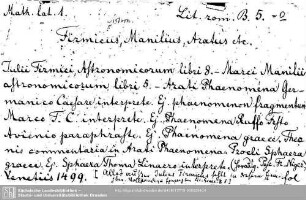 Math. lat. 1. Lit. rom. B. 5. -2
Firmicus, Manilius, Aratus etc.
Julii Firmici Astronomicorum libri 8. - Marci Manilii
astronomicorum libri 5. - Arati Phaenomena Ger-
manico Caesare interprete. G. phaenomenon fragmentum
Marco T. C. interprete. G. Phaenomena Ruffo Festo
Avienio paraphraste. G. Phainomena graece. Theo-
nis commentaria in Arati Phaenomena. Procli Sphaera
graece. G. Sphaera Thoma Linacro interprete.
Venetiis 1499. fol.